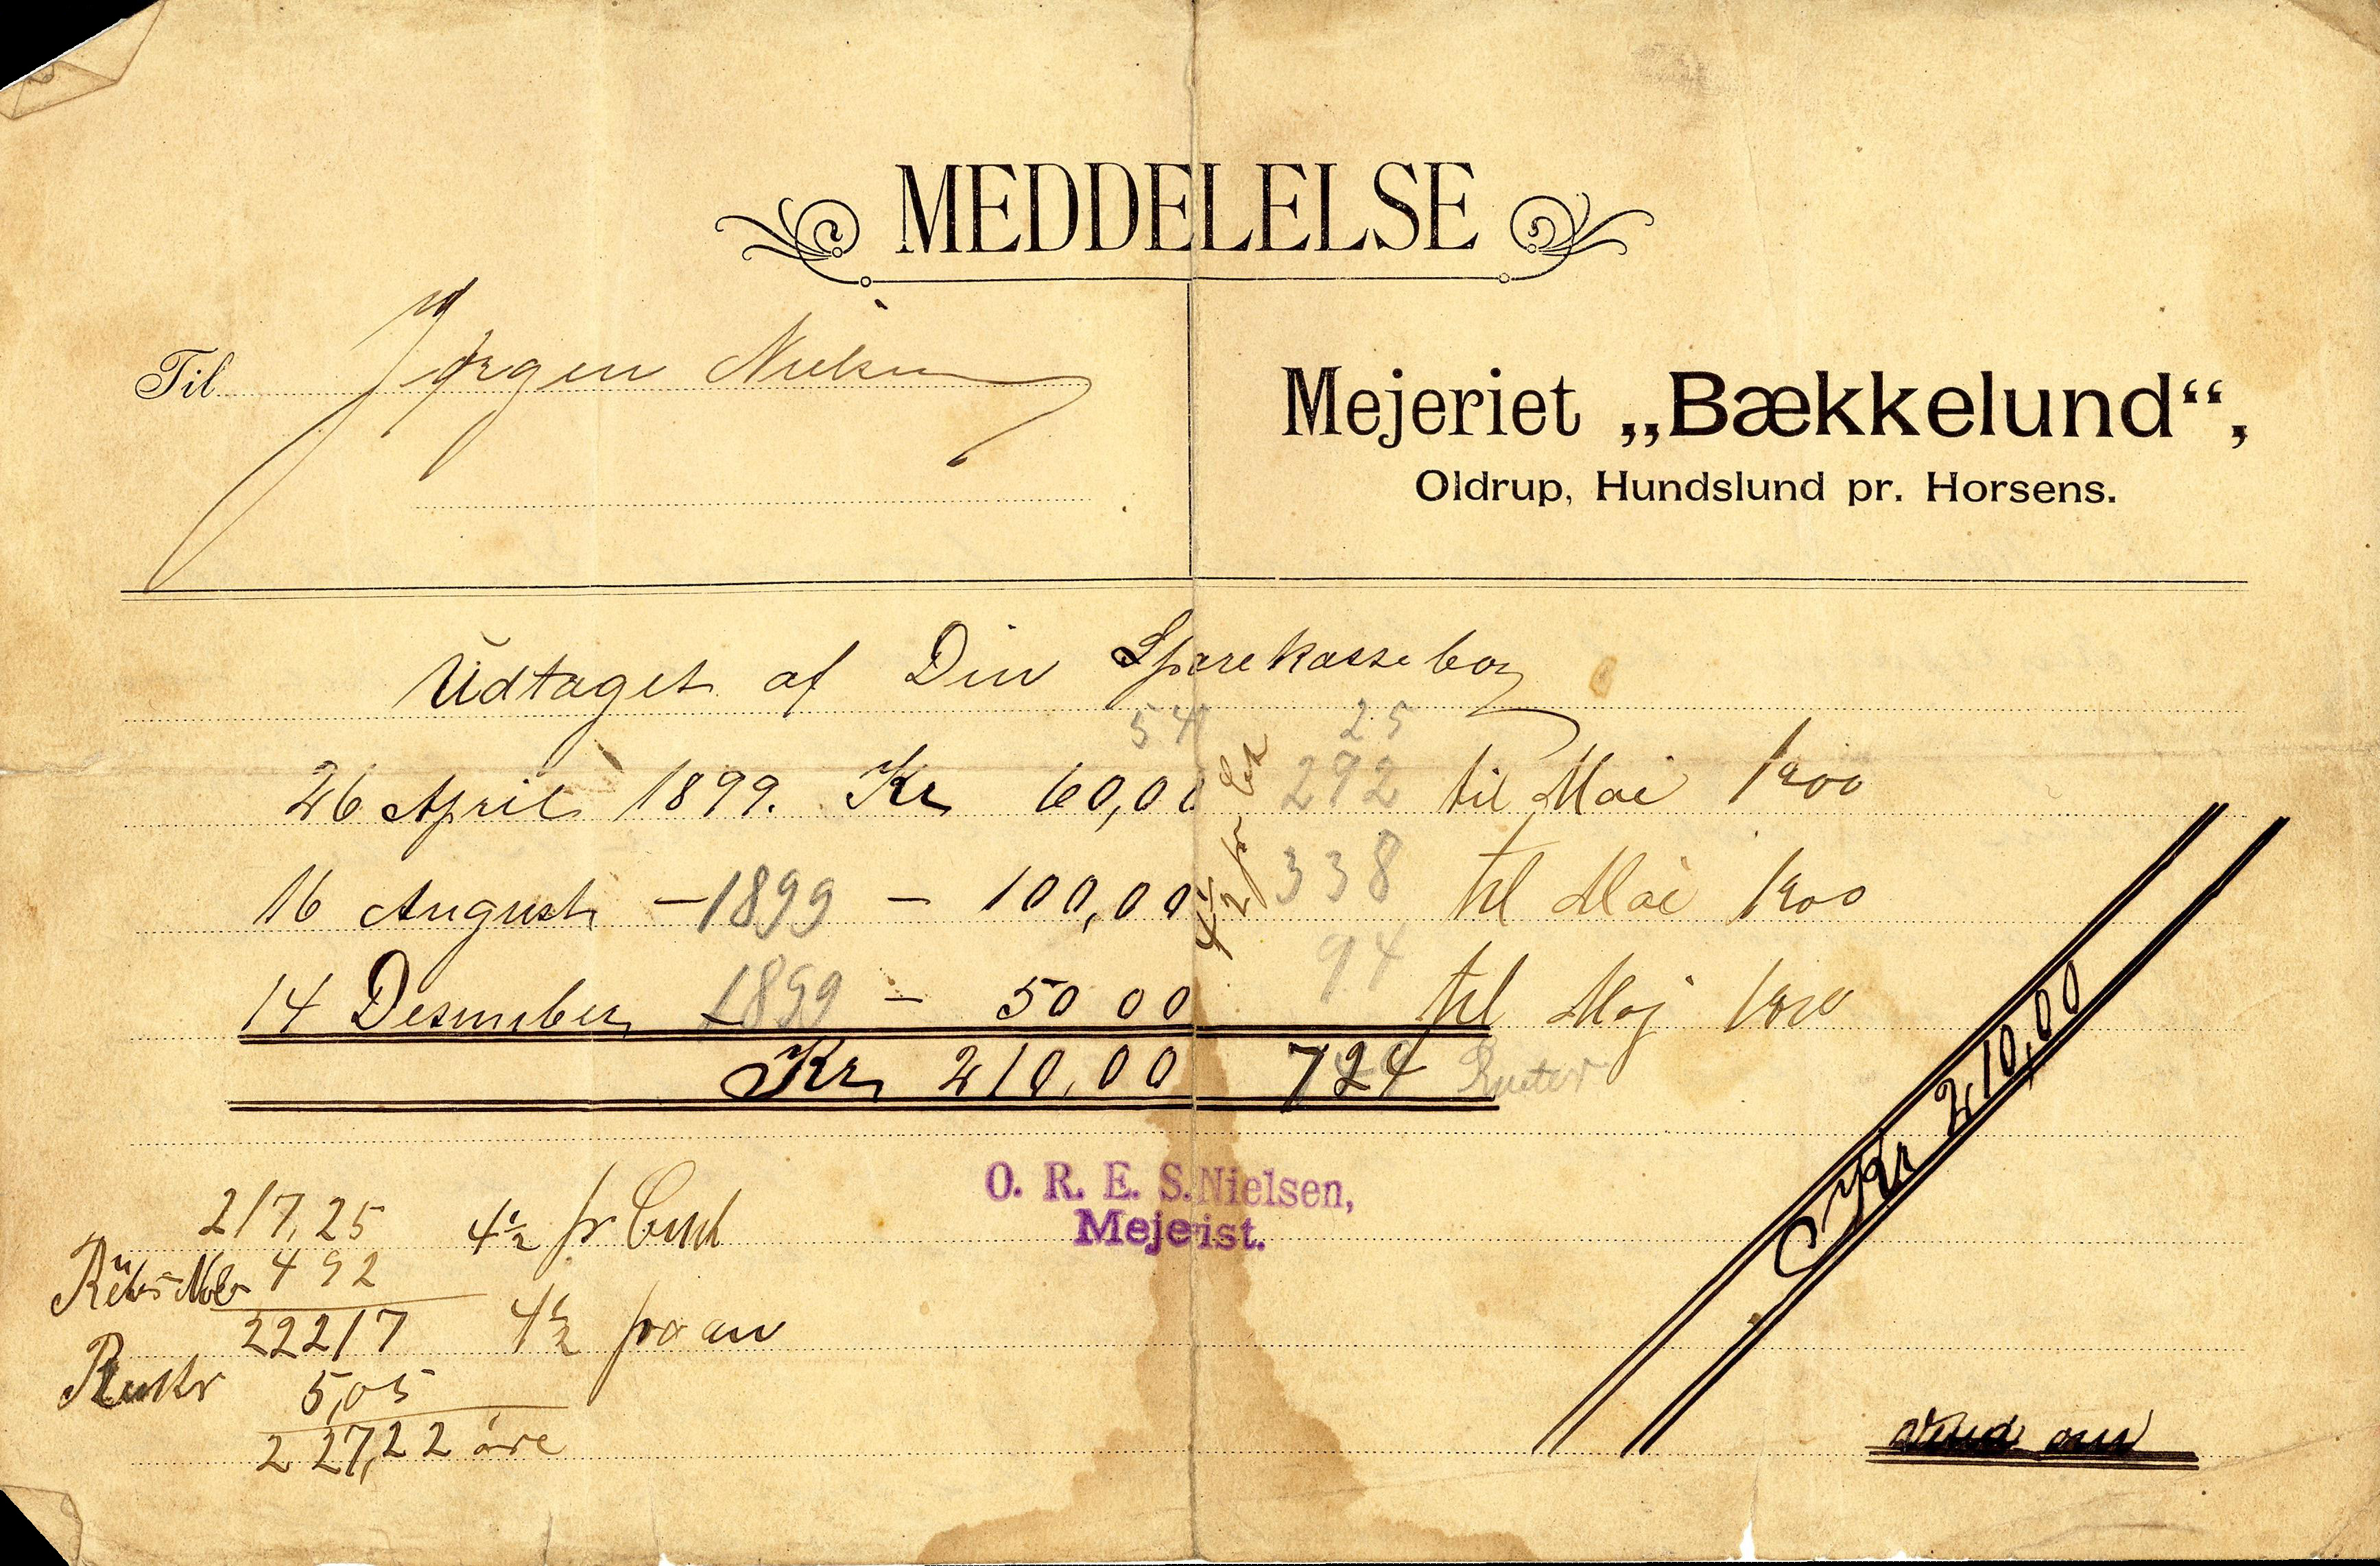 MEDDELELSE
Til Jørgen Nielsen
Mejeriet „Bækkelund“,
Oldrup, Hundslund pr. Horsens.
Udtaget af Din Sparekassebog
54 25
26 April 1899. Kr 60,00 292 til Mai 1900
16 August - 1899 - 100,00 338 til Mai 1900
4½ pr
14 Desember - 1899 - 50 00 94 til Maj 1900
Kr 210,00 724 Renter
Kr 210,00
O. R. E. S. Nielsen,
Mejerist.
217,25 4½ pr Cent
492
22217 4½ pro an
Renter 5,05
227,22 øre
Vend om